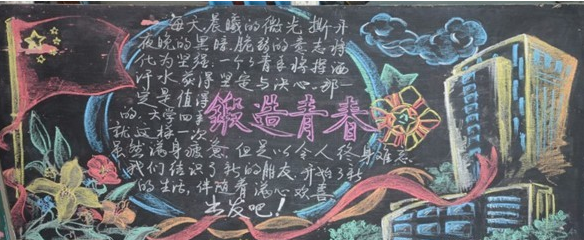 每天晨曦的微光撕开
夜晚的黑暗脆弱的意志将
化为坚强一个个青年将挥洒
汗水获得坚定与决心.那一
定是值得
的.大学四年
就这样一次
锻造青春
虽然满身疲惫.但是以令人终身难忘
我们结识了新的朋友开始了新
的生活,伴随着满心欢喜
出发吧!